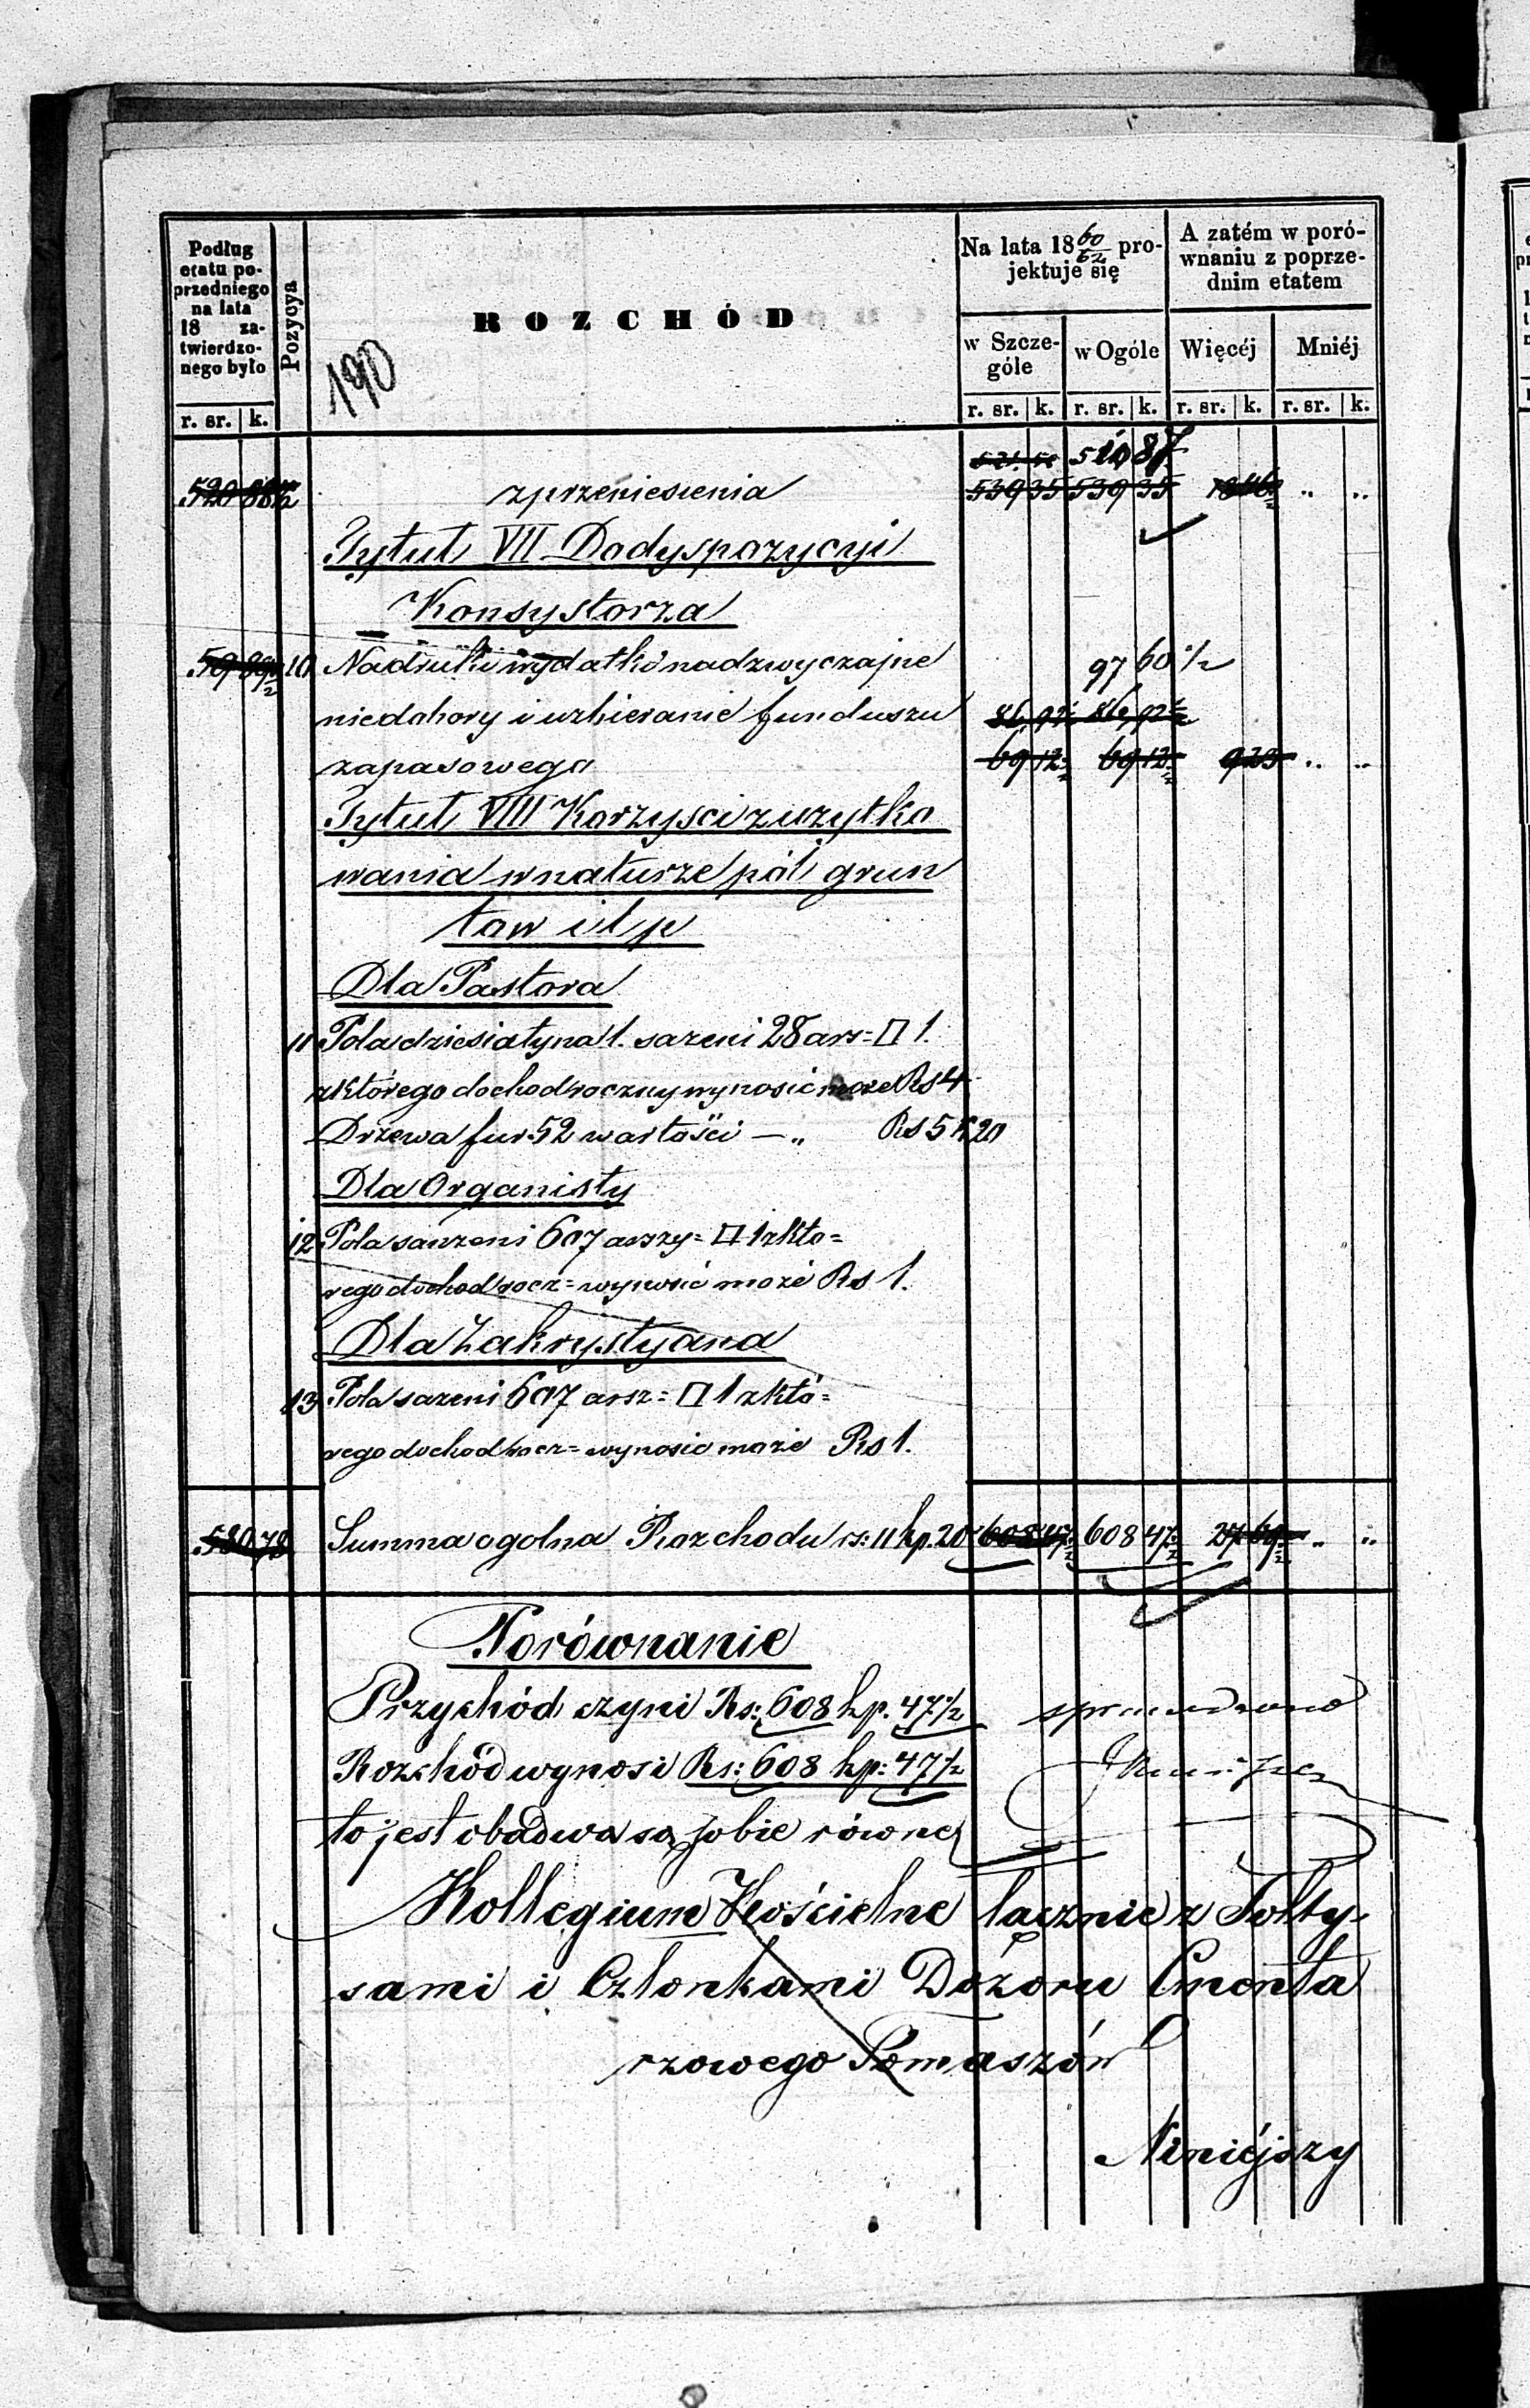 Podług etatu poprzedniego na lata 18 zatwierdzonego było
Pozycya
ROZCHÓD
Na lata 18 60/62 projektuje się
A zatém w porównaniu z poprzednim etatem
w Szczególe
w Ogóle
Więcéj
Mniéj
r. sr. k.
r. sr. k. r. sr. k. r. sr. k. r. sr. k.
190
510 87
zprzeniesienia 539 35 539 35 „ „
Tytuł VII Dodyspozycyi
Konsystorza
10 Nadruki wydatki nadzwyczajne 97 60 1/2
niedobory i uzbieranie funduszu 86 92 1/2 86 92 1/2
zapasowego 69 12 1/2 69 12 1/2 9 23 „ „
Tytuł VIII Korzyści z uzytko
wania wnaturze pól grun
tow itp
Dla Pastora
11 Pola dziesiatyna 1. sazeni 28 ars= □ 1.
zktórego dochod roczny wynosić może Rs 4
Drzewa fur 52 wartości — „ Rs 5 k 20
Dla Organisty
12 Pola sanzeni 607 arszy= □ 1 zkto=
rego dochod rocz= wynosić może Rs 1.
Dla Zakrystyana
13 Pola sazeni 607 arsz= □ 1 zktó=
rego dochod rocz= wynosic może Rs 1.
580 78 Summa ogolna Rozchodu rs: 11 kp. 20 608 47 1/2 608 47 1/2 27 69 1/2 „ „
Porównanie
Przychód czyni Rs: 608 kp. 47 1/2 sprawdzono
Rozchód wynosi Rs: 608 kp: 47 1/2
to jest obadwa są sobie równe
Kollegium Kościelne łącznie z Sołty-
sami i Członkami Dozoru Cmenta
rzowego Tomaszów
Niniéjszy